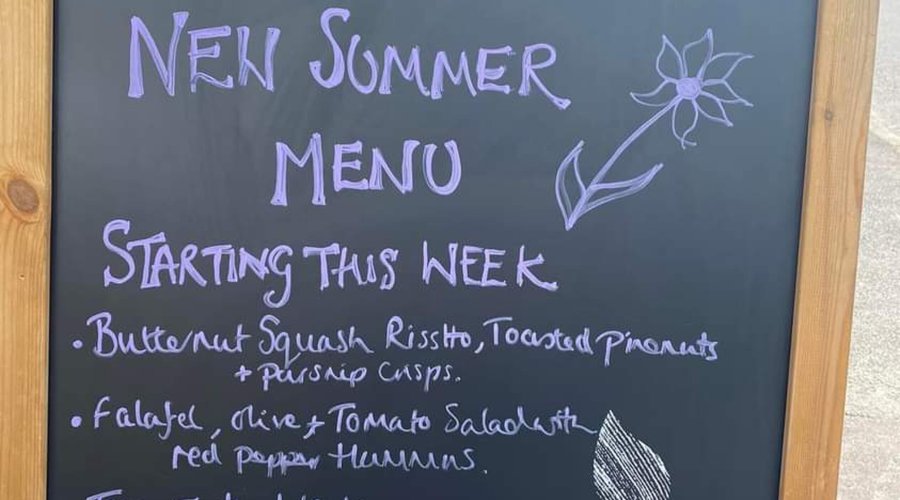 NEW SUMMER
MENU
STARTING THIS WEEK
• Butternut Squash Risstto, Toasted Pinenuts
+ parsnip crisps.
• Falafel, olive + Tomato Salad with
red pepper Hummus.